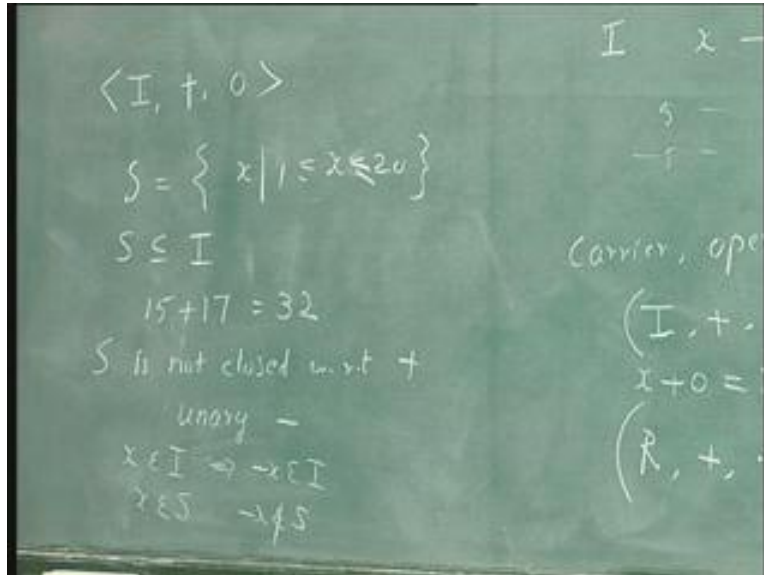 <I, +, 0>
S = { x | 1 ≤ x ≤ 20 }
S ⊆ I
15+17 = 32
S is not closed w.r.t +
unary -
x ε I ⇒ -x ε I
x ε S -x ∉ S
I x -
5 -
-5 -
Carrier, ope
(I, +,
x+0 =
(R, +,